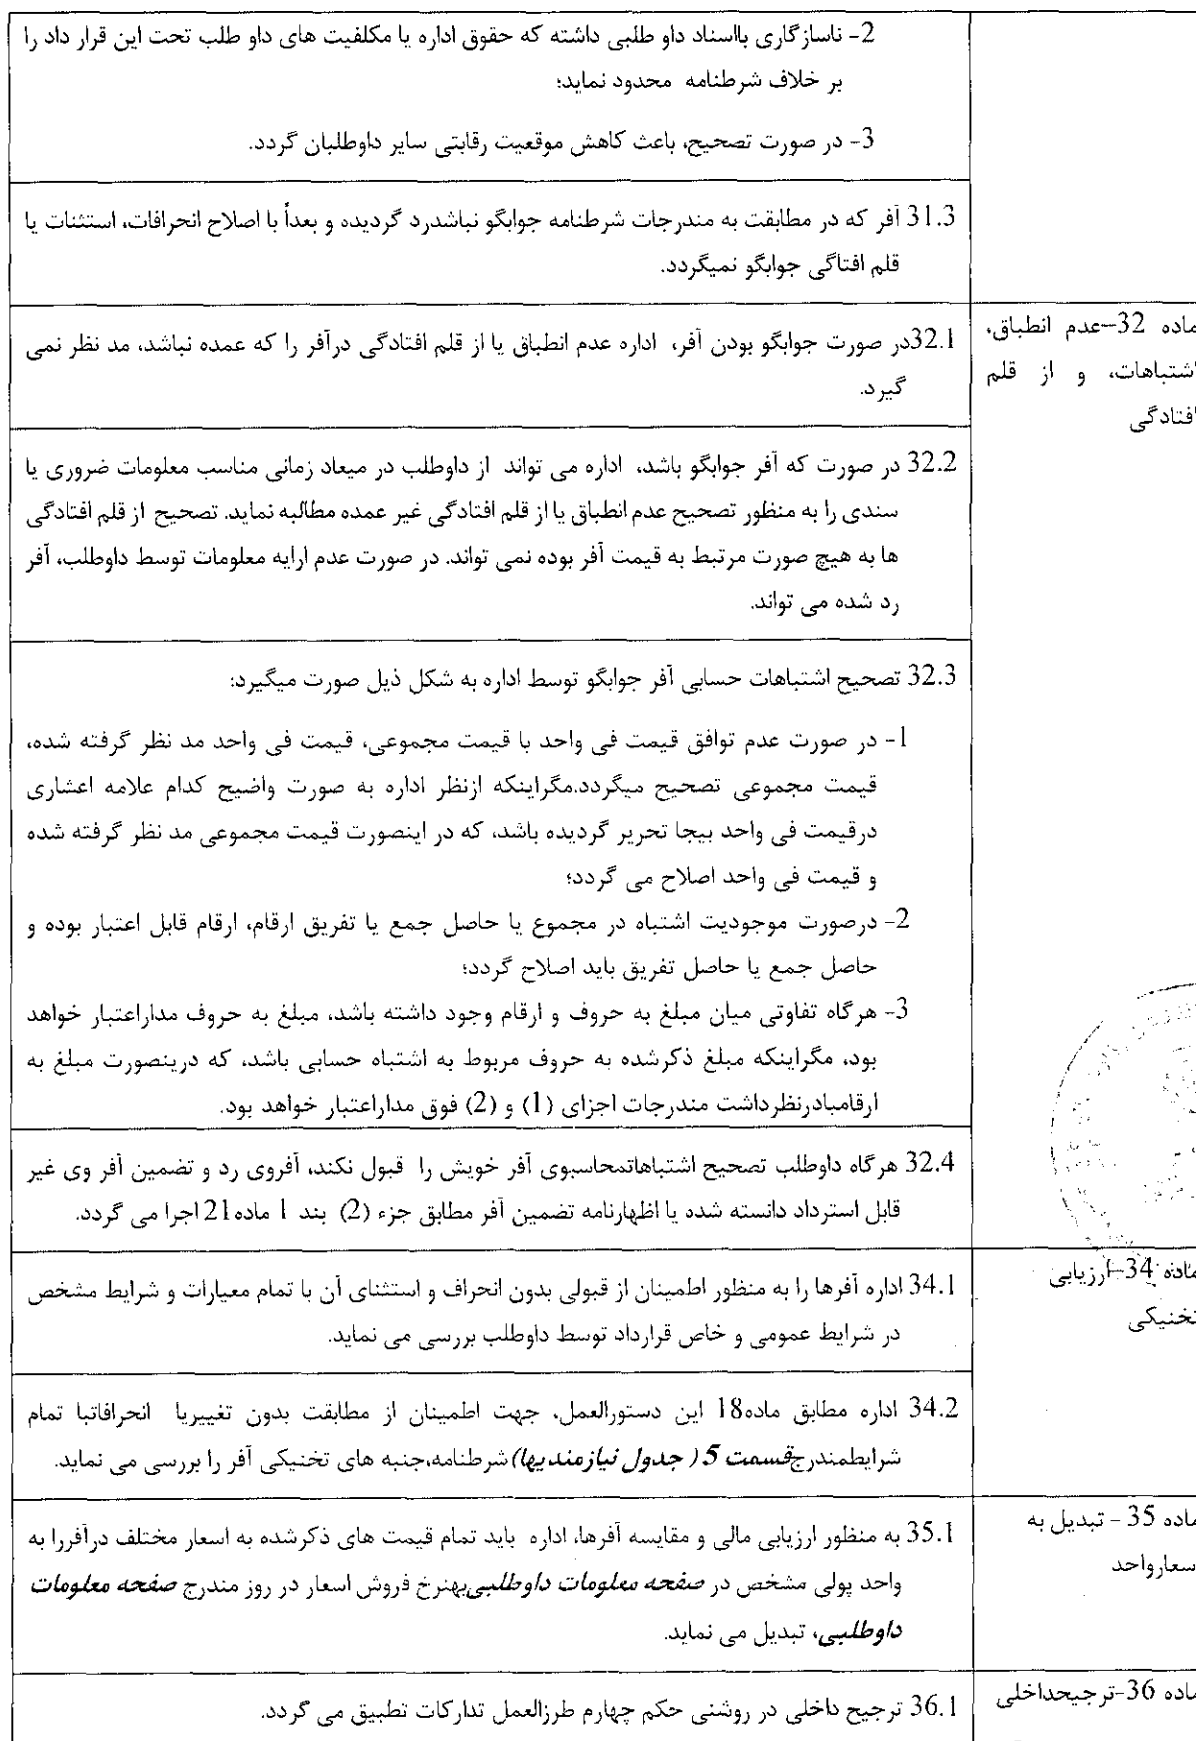 2- ناسازگاری بااسناد داو طلبی داشته که حقوق اداره یا مکلفیت های داو طلب تحت این قرار داد را
بر خلاف شرطنامه محدود نماید؛
3- در صورت تصحیح، باعث کاهش موقعیت رقابتی سایر داوطلبان گردد.
31.3 آفر که در مطابقت به مندرجات شرطنامه جوابگو نباشدرد گردیده و بعداً با اصلاح انحرافات، استثنات یا
قلم افتاگی جوابگو نمیگردد.
ماده 32-عدم انطباق،
اشتباهات، و از قلم
افتادگی
32.1در صورت جوابگو بودن آفر، اداره عدم انطباق یا از قلم افتادگی درآفر را که عمده نباشد، مد نظر نمی
گیرد.
32.2 در صورت که آفر جوابگو باشد، اداره می تواند از داوطلب در میعاد زمانی مناسب معلومات ضروری یا
سندی را به منظور تصحیح عدم انطباق یا از قلم افتادگی غیر عمده مطالبه نماید. تصحیح از قلم افتادگی
ها به هیچ صورت مرتبط به قیمت آفر بوده نمی تواند. در صورت عدم ارایه معلومات توسط داوطلب، آفر
رد شده می تواند.
32.3 تصحیح اشتباهات حسابی آفر جوابگو توسط اداره به شکل ذیل صورت میگیرد:
1- در صورت عدم توافق قیمت فی واحد با قیمت مجموعی، قیمت فی واحد مد نظر گرفته شده،
قیمت مجموعی تصحیح میگردد.مگراینکه ازنظر اداره به صورت واضیح کدام علامه اعشاری
درقیمت فی واحد بیجا تحریر گردیده باشد، که در اینصورت قیمت مجموعی مد نظر گرفته شده
و قیمت فی واحد اصلاح می گردد؛
2- درصورت موجودیت اشتباه در مجموع یا حاصل جمع یا تفریق ارقام، ارقام قابل اعتبار بوده و
حاصل جمع یا حاصل تفریق باید اصلاح گردد؛
3- هرگاه تفاوتی میان مبلغ به حروف و ارقام وجود داشته باشد، مبلغ به حروف مداراعتبار خواهد
بود، مگراینکه مبلغ ذکرشده به حروف مربوط به اشتباه حسابی باشد، که درینصورت مبلغ به
ارقامبادرنظرداشت مندرجات اجزای (1) و (2) فوق مداراعتبار خواهد بود.
32.4 هرگاه داوطلب تصحیح اشتباهاتمحاسبوی آفر خویش را قبول نکند، آفروی رد و تضمین آفر وی غیر
قابل استرداد دانسته شده یا اظهارنامه تضمین آفر مطابق جزء (2) بند 1 ماده21 اجرا می گردد.
ماده 34-ارزیابی
تخنیکی
34.1 اداره آفرها را به منظور اطمینان از قبولی بدون انحراف و استثنای آن با تمام معیارات و شرایط مشخص
در شرایط عمومی و خاص قرارداد توسط داوطلب بررسی می نماید.
34.2 اداره مطابق ماده18 این دستورالعمل، جهت اطمینان از مطابقت بدون تغییریا انحرافاتبا تمام
شرایطمندرجقسمت 5 ( جدول نیازمندیها)شرطنامه،جنبه های تخنیکی آفر را بررسی می نماید.
ماده 35 - تبدیل به
اسعارواحد
35.1 به منظور ارزیابی مالی و مقایسه آفرها، اداره باید تمام قیمت های ذکرشده به اسعار مختلف درآفررا به
واحد پولی مشخص در صفحه معلومات داوطلبیبهنرخ فروش اسعار در روز مندرج صفحه معلومات
داوطلبی، تبدیل می نماید.
ماده 36-ترجیحداخلی
36.1 ترجیح داخلی در روشنی حکم چهارم طرزالعمل تدارکات تطبیق می گردد.